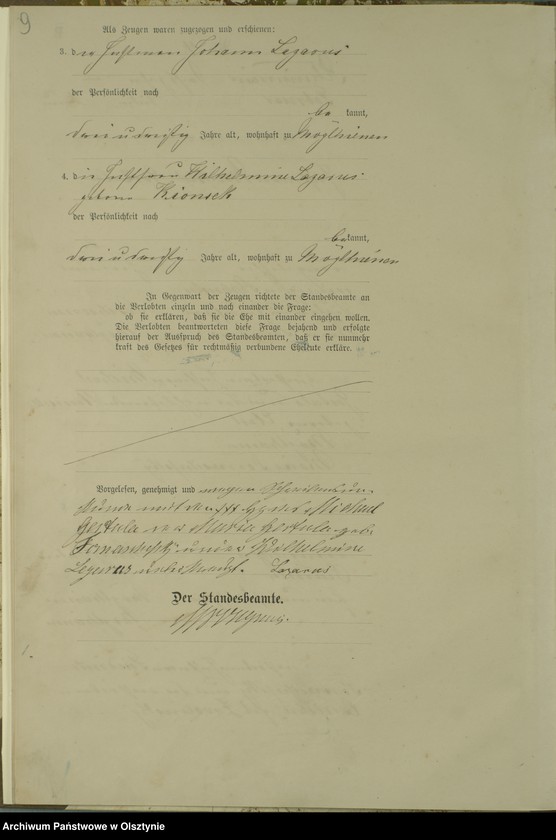 9
Als Zeugen waren zugezogen und erschienen:
3. der Instmann Johann Lazarus
der Persönlichkeit nach
be kannt,
drei u dreißig Jahre alt, wohnhaft zu Mögthienen
4. die Instfrau Wilhelmine Lazarus
geborne
der Persönlichkeit nach
bekannt,
drei u dreißig Jahre alt, wohnhaft zu Mögthienen
In Gegenwart der Zeugen richtete der Standesbeamte an
die Verlobten einzeln und nach einander die Frage:
ob sie erklären, daß sie die Ehe mit einander eingehen wollen.
Die Verlobten beantworteten diese Frage bejahend und erfolgte
hierauf der Ausspruch des Standesbeamten, daß er sie nunmehr
kraft des Gesetzes für rechtmäßig verbundene Eheleute erkläre.
Vorgelesen, genehmigt und wegen Schreibensun-
kunde mit Michael
Maria geb.
Wilhelmine
Lazarus Lazarus
Der Standesbeamte.
Archiwum Państwowe w Olsztynie